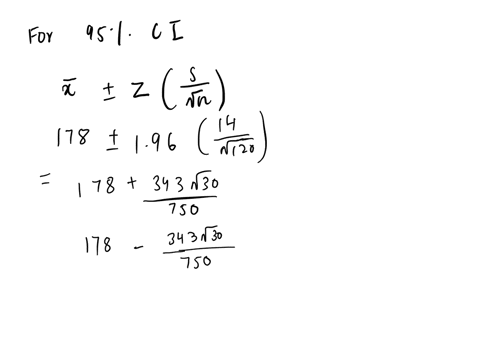 For 95%. CI
x̄ ± Z (s/√n)
178 ± 1.96 (14/√120)
= 178 + 343√30/750
178 - 343√30/750